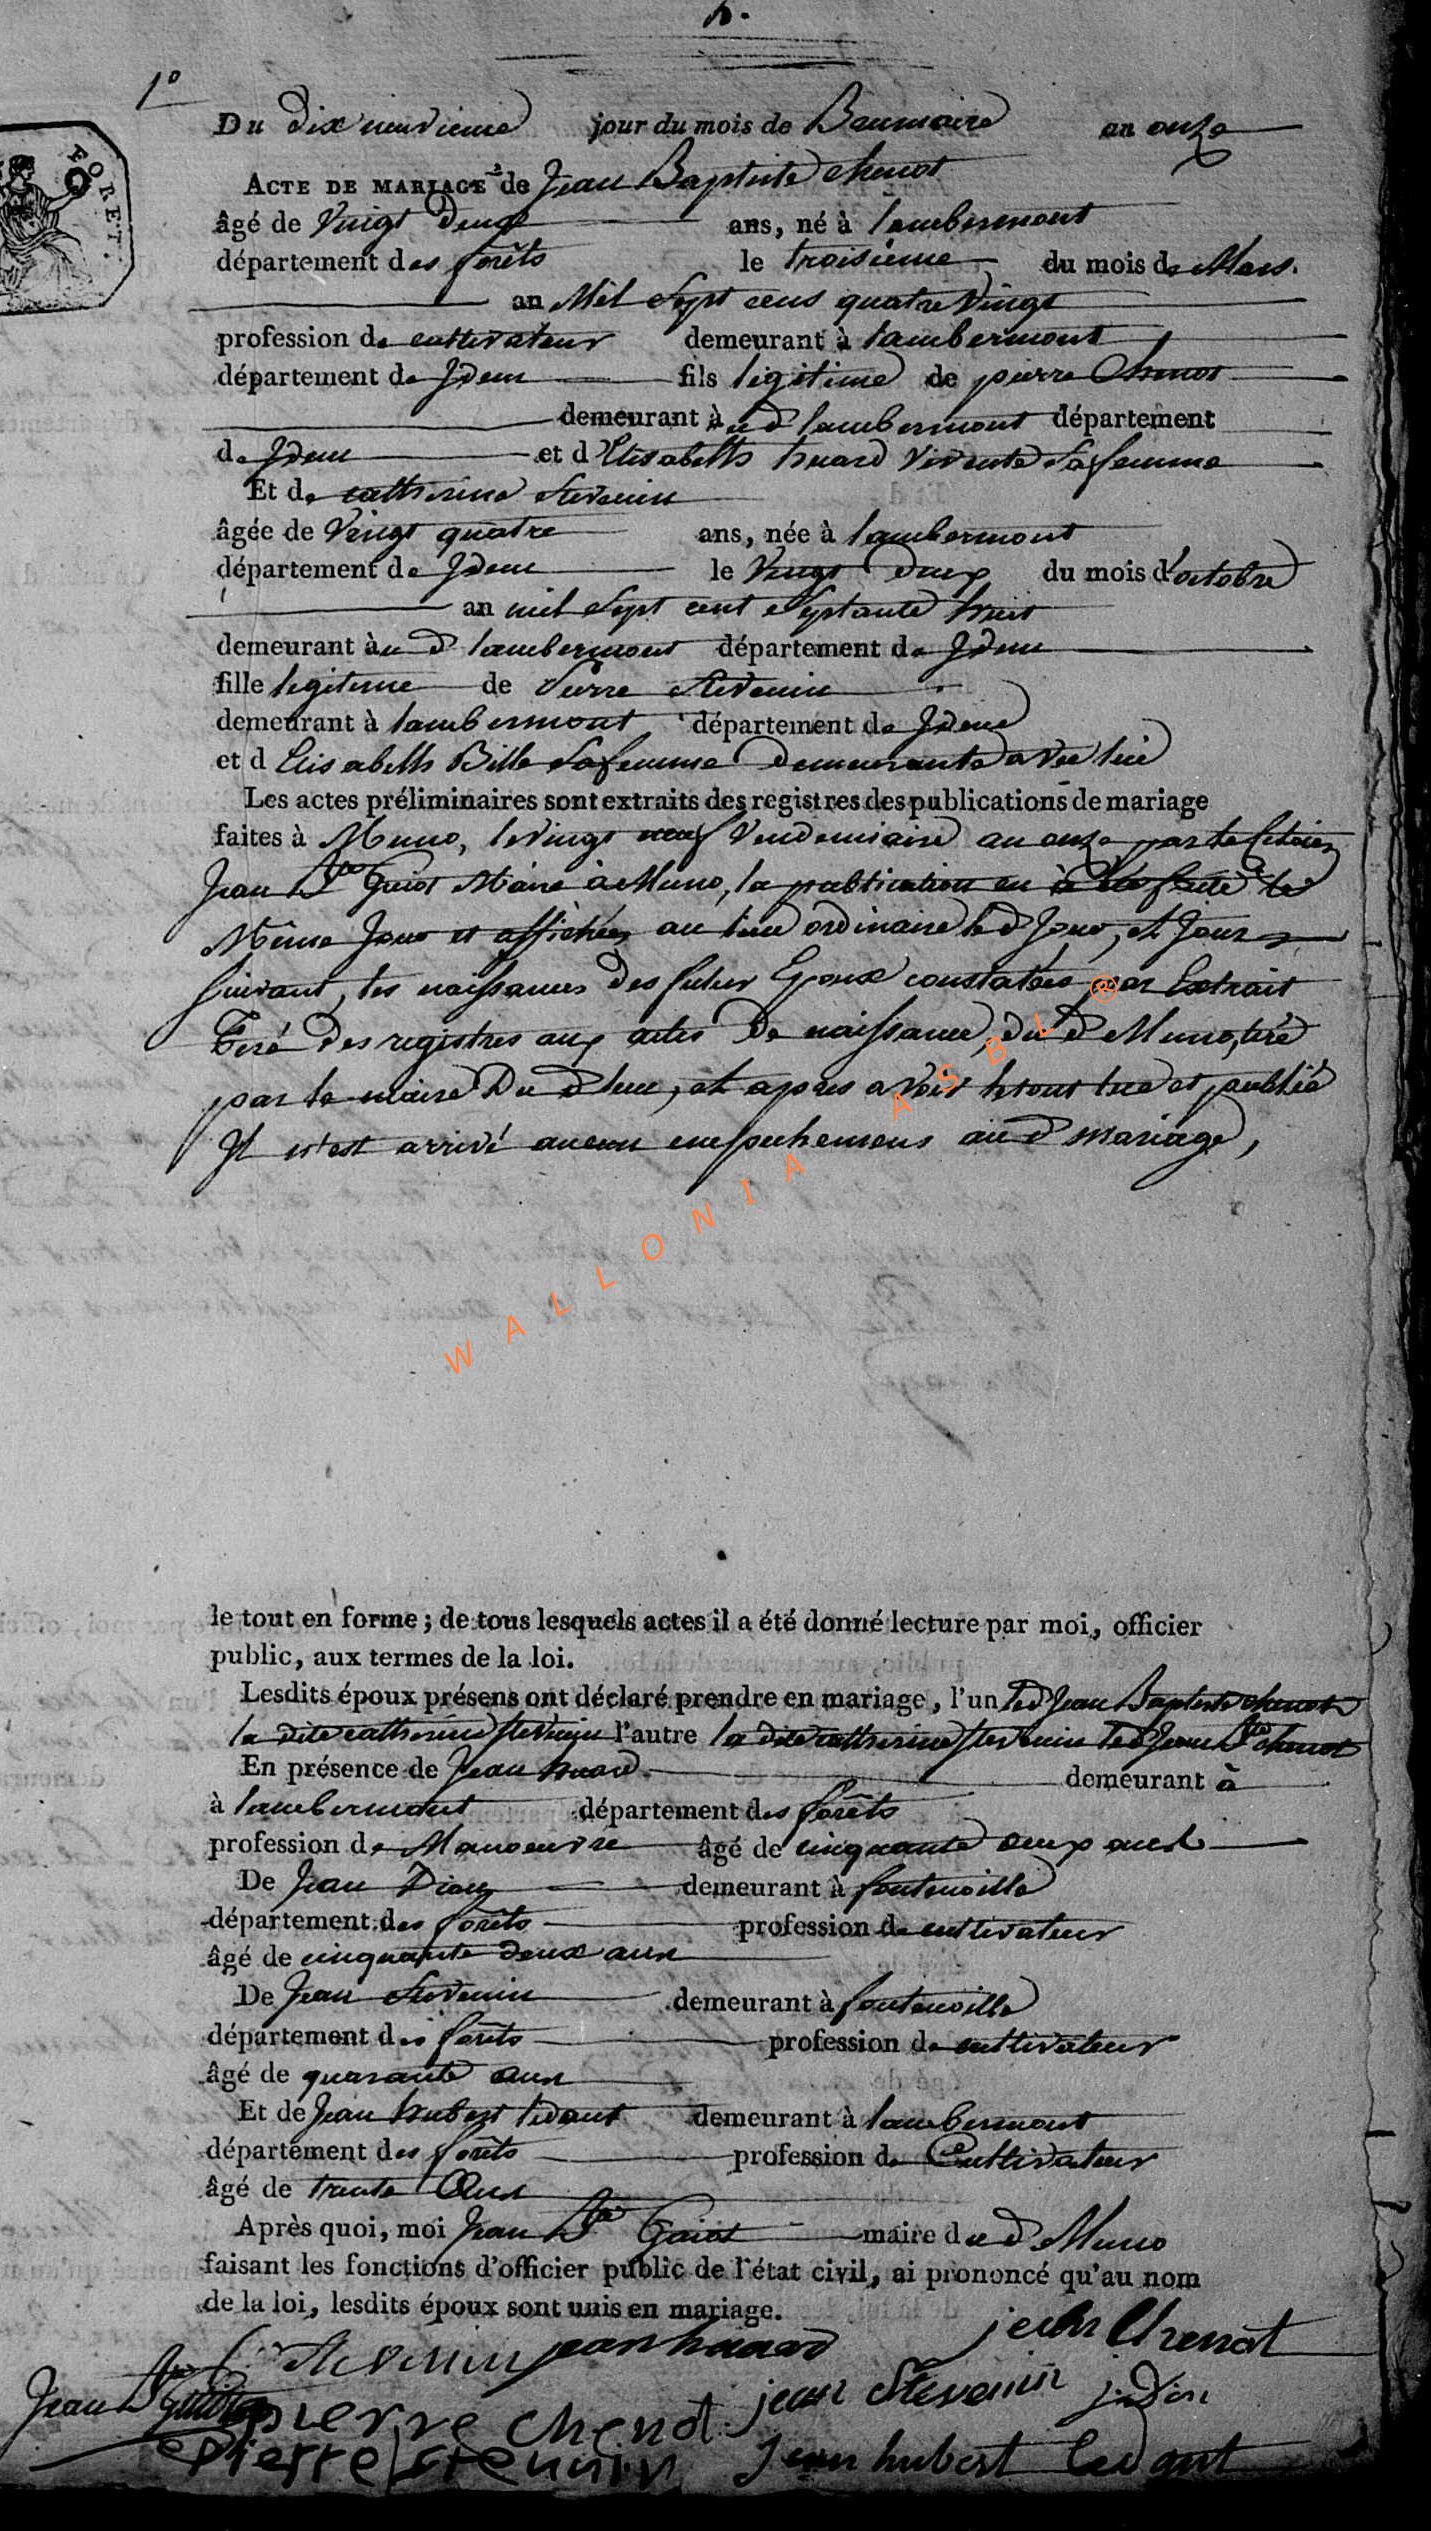 1°
FORET.
Du Dix neuvieme jour du mois de Brumaire an onze
ACTE DE MARIAGE de Jean Baptiste chenot
âgé de Vingt Deux ans, né à lambermont
département des forêts le troisieme du mois de Mars.
an Mil Sept cens quatre Vingt
profession de cultivateur demeurant à lambermont
département de Idem fils legitime de pierre Chenot
demeurant à ud lambermont département
de Idem et d Elisabeth huard vivente Sa femme
Et de catherine Stevenin
âgée de Vingt quatre ans, née à lambermont
département de Idem le Vingt Deux du mois d'octobre
an mil Sept cent Septante huit
demeurant à ud lambermont département de Idem
fille legitime de Pierre Stevenin
demeurant à lambermont département de Idem
et d Elisabeth Bille Sa femme Demeurante avec lui
Les actes préliminaires sont extraits des registres des publications de mariage
faites à Muno, le Vingt neuf Vendemiaire an onze par le Citoien
Jean Bte Guiot Maire à Muno, la publication en à été faite le
Même Jour et affichée au lieu ordinaire led Jour, et Jours
suivant, les naissances des futur Epoux constatées par Extrait
Tiré des registres aux actes De naissance, dud Muno, tiré
par le maire Du d lieu, et apres avoir le tout lue et publié
Il n'est arrivé aucun empechemens aud mariage,
WALLONIA ASBL ®
le tout en forme ; de tous lesquels actes il a été donné lecture par moi, officier
public, aux termes de la loi.
Lesdits époux présens ont déclaré prendre en mariage, l'un led Jean Baptiste chenot
la dite catherine Stevenin l'autre la dite catherine Stevenin led Jean Bte chenot
En présence de Jean huard demeurant à
à lambermont département des forêts
profession de Manoeuvre âgé de cinquante deux ans
De Jean Dion demeurant à fontenoille
département des forêts profession de cultivateur
âgé de cinquante deux ans
De Jean Stevenin demeurant à fontenoille
département des forêts profession de cultivateur
âgé de quarante ans
Et de Jean hubert ledant demeurant à lambermont
département des forêts profession de Cultivateur
âgé de trente Ans
Après quoi, moi Jean Bte Guiot maire dud Muno
faisant les fonctions d'officier public de l'état civil, ai prononcé qu'au nom
de la loi, lesdits époux sont unis en mariage.
Stevenin jean huard jean Chenot
Jean Bte Guiot pierre chenot jean Stevenin j. Dion
Pierre Stevenin Jean hubert ledant